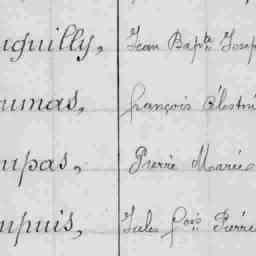 uguilly, Jean Bapte Josep
umas, françois Célestin
upas, Pierre Marie
upuis, Jules fçois Pierre